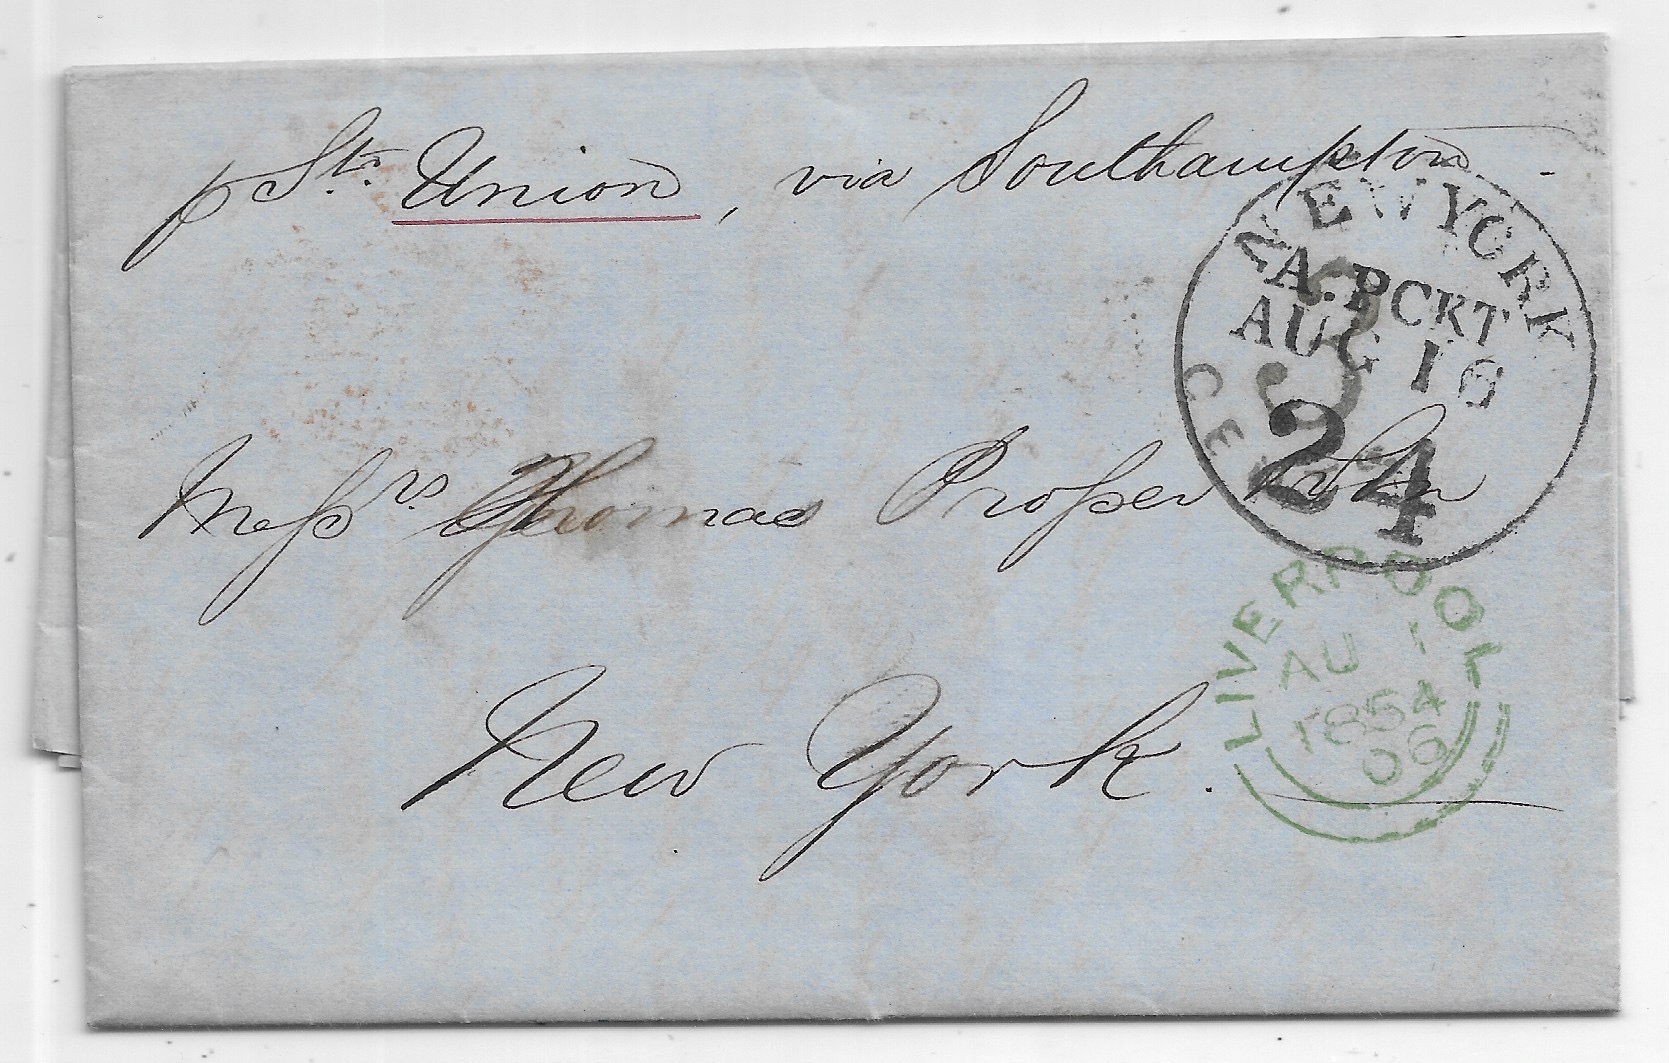 p Str. Union, via Southampton.
NEW YORK
A. PCKT
AUG 16
24
CE
Messrs Thomas Prosser & Son
New York.
LIVERPOOL
AU 1
1854
06